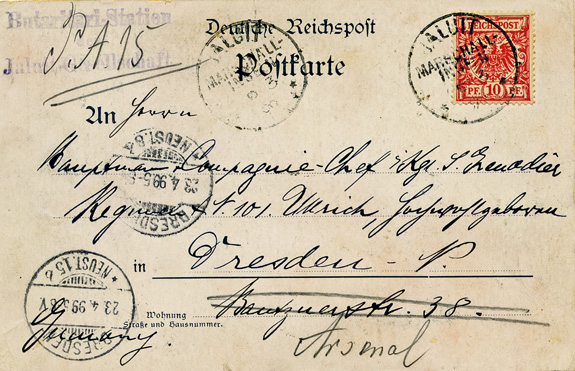 Butaritari-Station
JA 15
Jaluit-Gesellschaft
Deutsche Reichspost
Postkarte
JALUIT
MARSHALL-
INSELN
JALUIT
MARSHALL-
INSELN
REICHSPOST
PF. 10 PF.
An Herrn
Hauptmann Compagnie-Chef i/Kgl. S. Grenadier
Regiment N 101 Ullrich, Hochwohlgeboren
DRESDEN
NEUST. 15
23.4.99.
in Dresden - N.
DRESDEN
NEUST. 15
23.4.99.
Bautznerstr. 38.
Wohnung
Straße und Hausnummer.
Arsenal
Germany